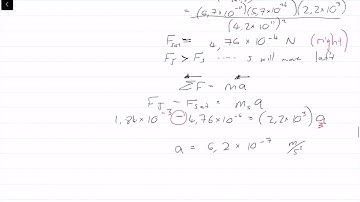 = (6,7×10⁻¹¹)(5,7×10²⁶)(2,2×10³)
(4,2×10¹¹)²
F_sat = 4,76×10⁻⁴ N (right)
F_J > F_s ..... s will move left
ΣF = ma
F_J − F_sat = m_s a
1,86×10⁻³ − 4,76×10⁻⁴ = (2,2×10³) a
a = 6,2×10⁻⁷ m/s²